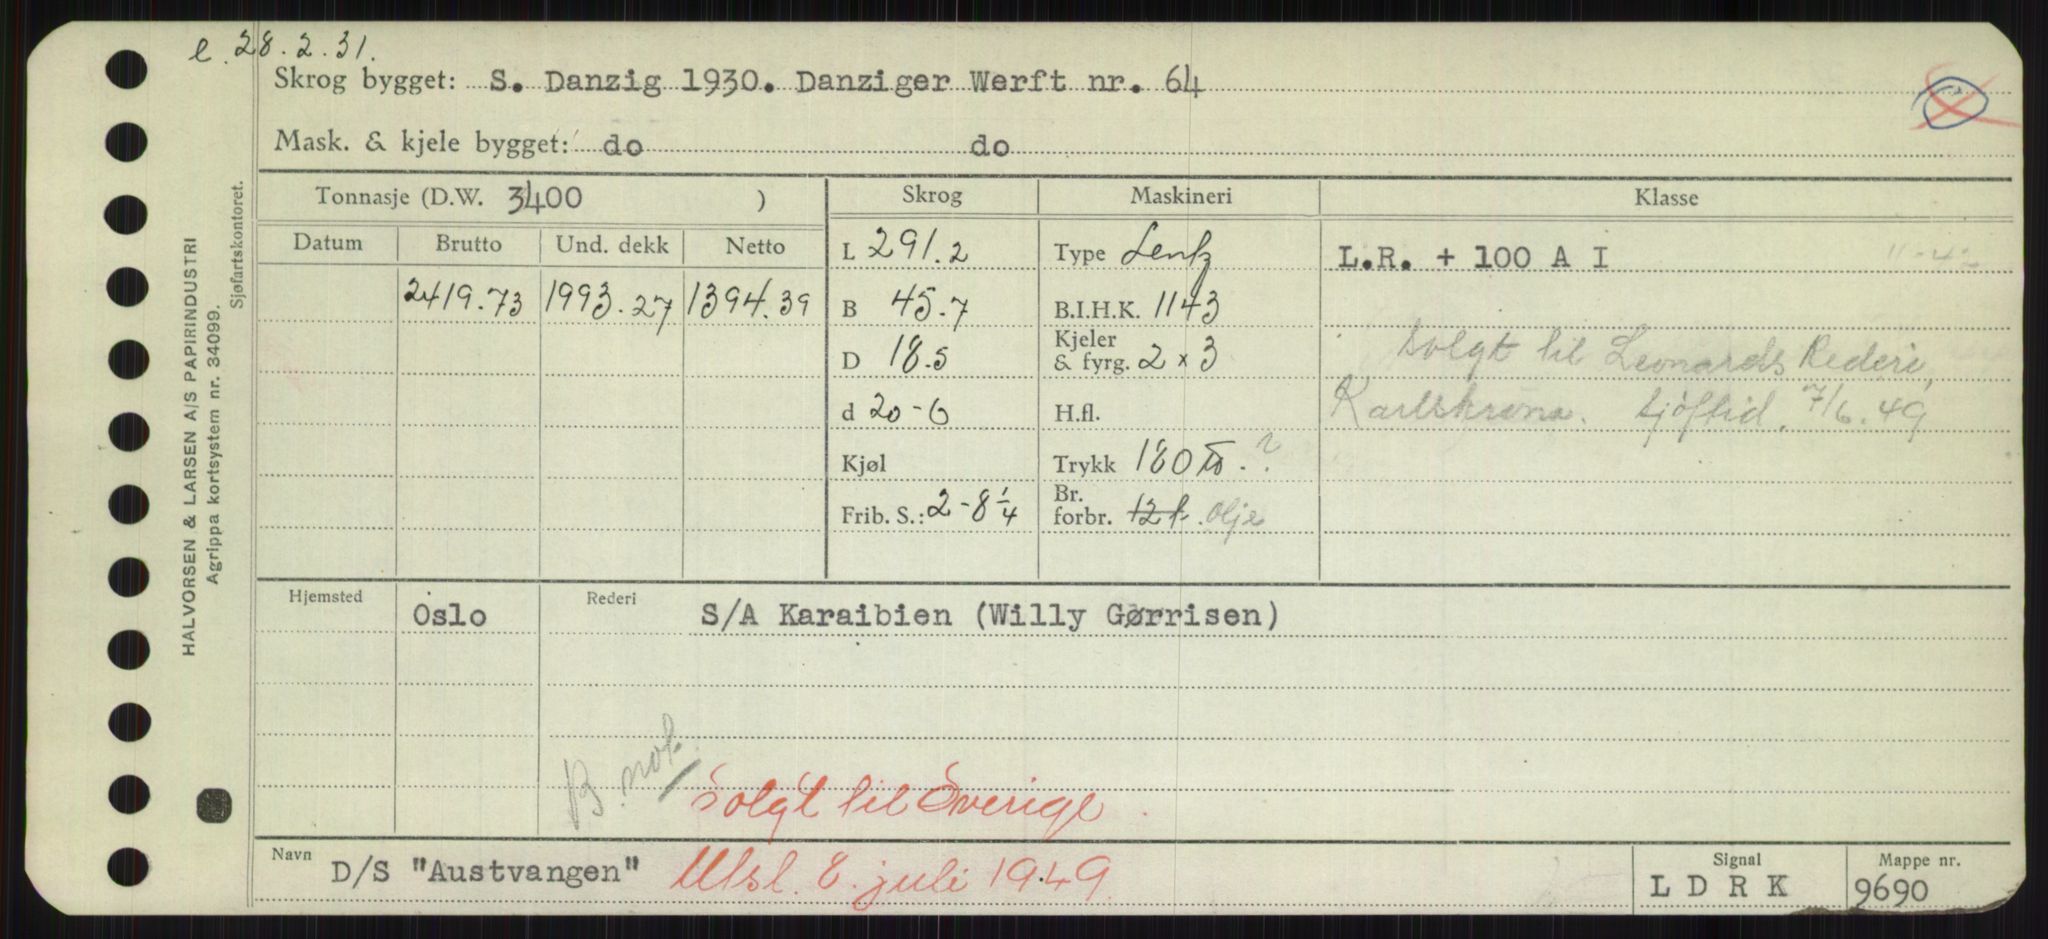 e. 28.2.31.
Skrog bygget: S. Danzig 1930. Danziger Werft nr. 64
Mask. & kjele bygget: do do
Tonnasje (D.W. 3400 ) Skrog Maskineri Klasse
Datum Brutto Und. dekk Netto L 291.2 Type Lentz L.R. + 100 A I 11-42
2419.73 1993.27 1394.39 B 45.7 B.I.H.K. 1143
D 18.5 Kjeler & fyrg. 2 x 3 Solgt til Leonards Rederi,
d 20-6 H.fl. Karlskrona. Sjöftid. 7/6.49
Kjøl Trykk 180 ?
Frib. S.: 2-8 1/4 Br. forbr. 12 t. olje
Hjemsted Oslo Rederi S/A Karaibien (Willy Gørrisen)
B. nok.
Solgt til Sverige.
Navn D/S "Austvangen" Utsl. 8. juli 1949. Signal L D R K Mappe nr. 9690
HALVORSEN & LARSEN A/S PAPIRINDUSTRI
Agrippa kortsystem nr. 34099.
Sjøfartskontoret.